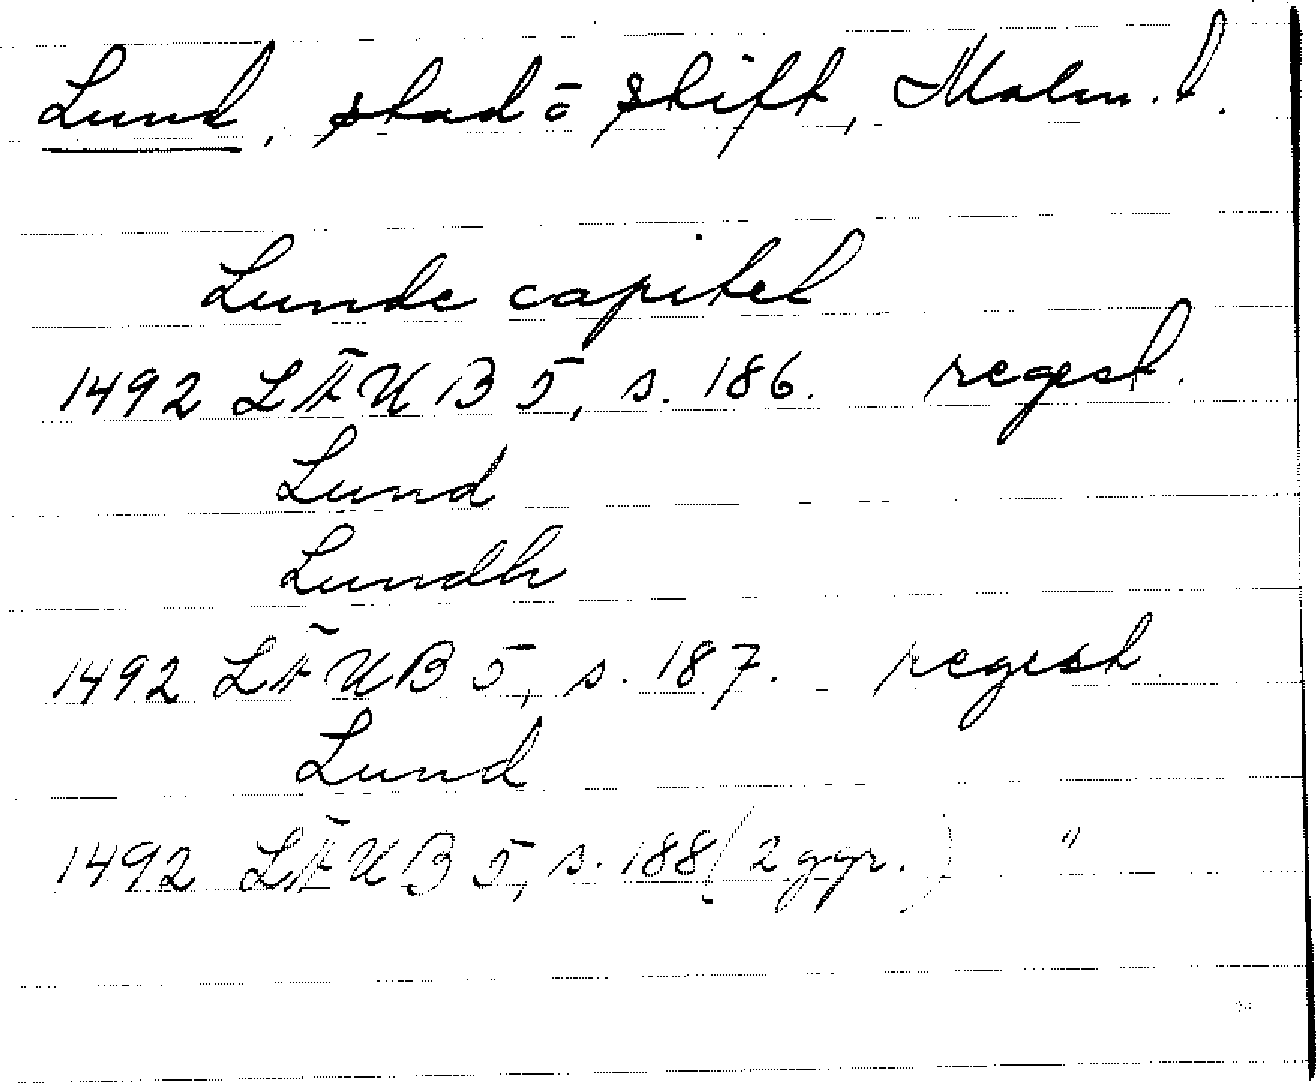 Lund, stad o stift, Malm. l.
Lunde capitel
1492 LÄUB 5, s. 186. regest.
Lund
Lundh
1492 LÄUB 5, s. 187. regest.
Lund
1492 LÄUB 5, s. 188 (2 ggr.) "